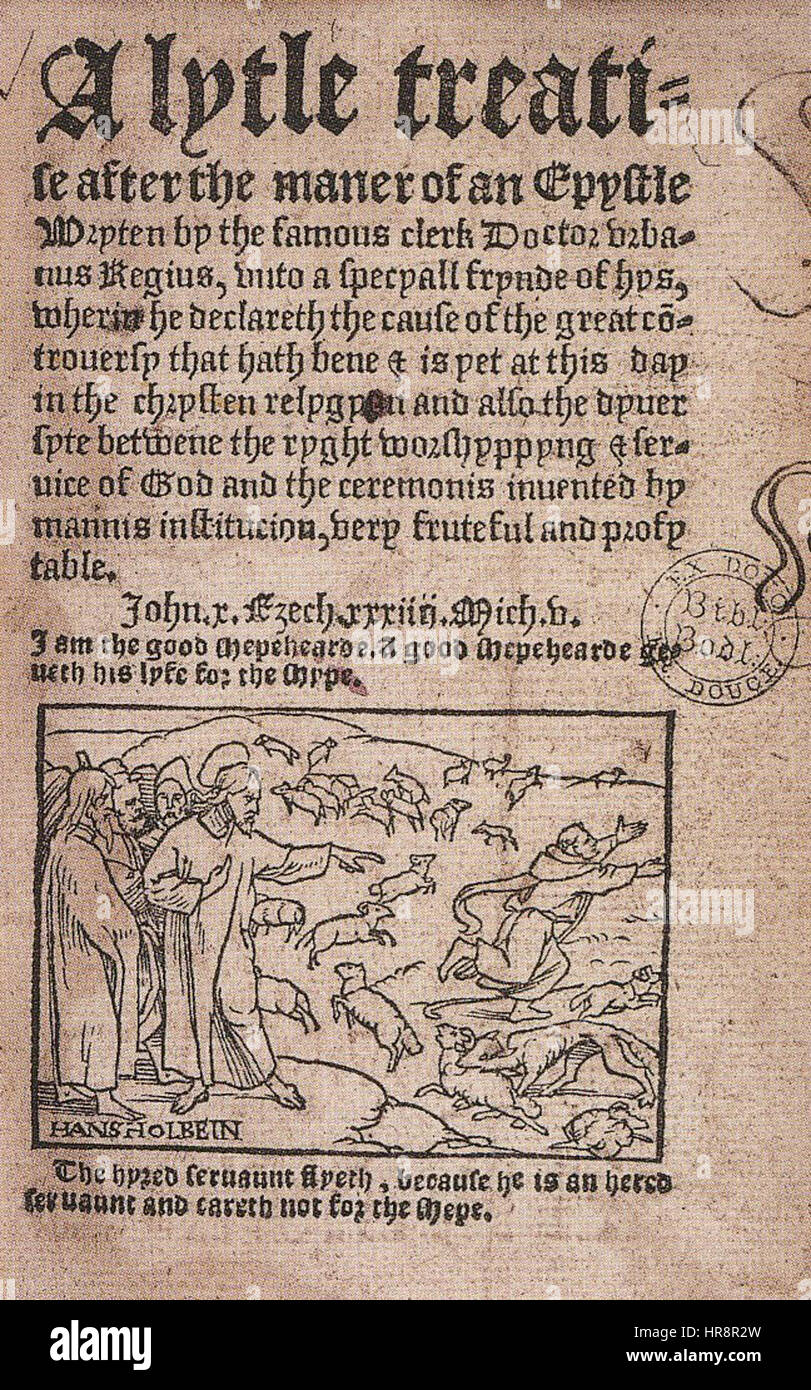 A lytle treati=
se after the maner of an Epystle
Wryten by the famous clerk Doctor vrba=
nus Regius, vnto a specyall frynde of hys,
wherin he declareth the cause of the great cõ=
trouersy that hath bene & is yet at this day
in the chrysten relygyon and also the dyuer
syte betwene the ryght worshyppyng & ser=
uice of God and the ceremonis inuented by
mannis institucion, very fruteful and profy
table.
John.x. Ezech.xxxiiij. Mich.v.
I am the good shepehearde. A good shepehearde ge=
ueth his lyfe for the shype.
EX DONO
Bibl.
Bodl.
DOUCE
HANS HOLBEIN
The hyred seruaunt flyeth, because he is an hered
seruaunt and careth not for the shepe.
alamy stock photo
HR8R2W
www.alamy.com